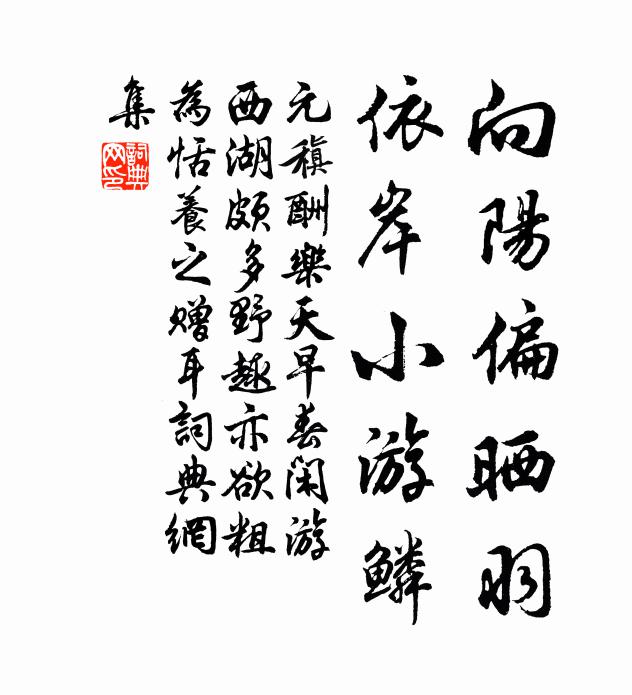 向陽偏晒羽
依岸小游鱗
元稹酬樂天早春閑游
西湖頗多野趣亦欲粗
為恬養之贈耳詞典網
集
詞典
网印